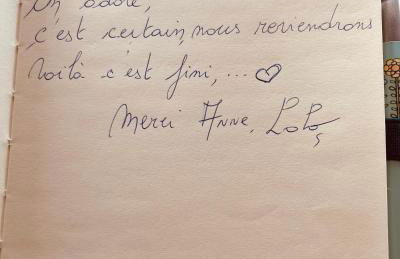 on adore,
c'est certain, nous reviendrons
Voilà c'est fini, ... ♡
Merci Anne,